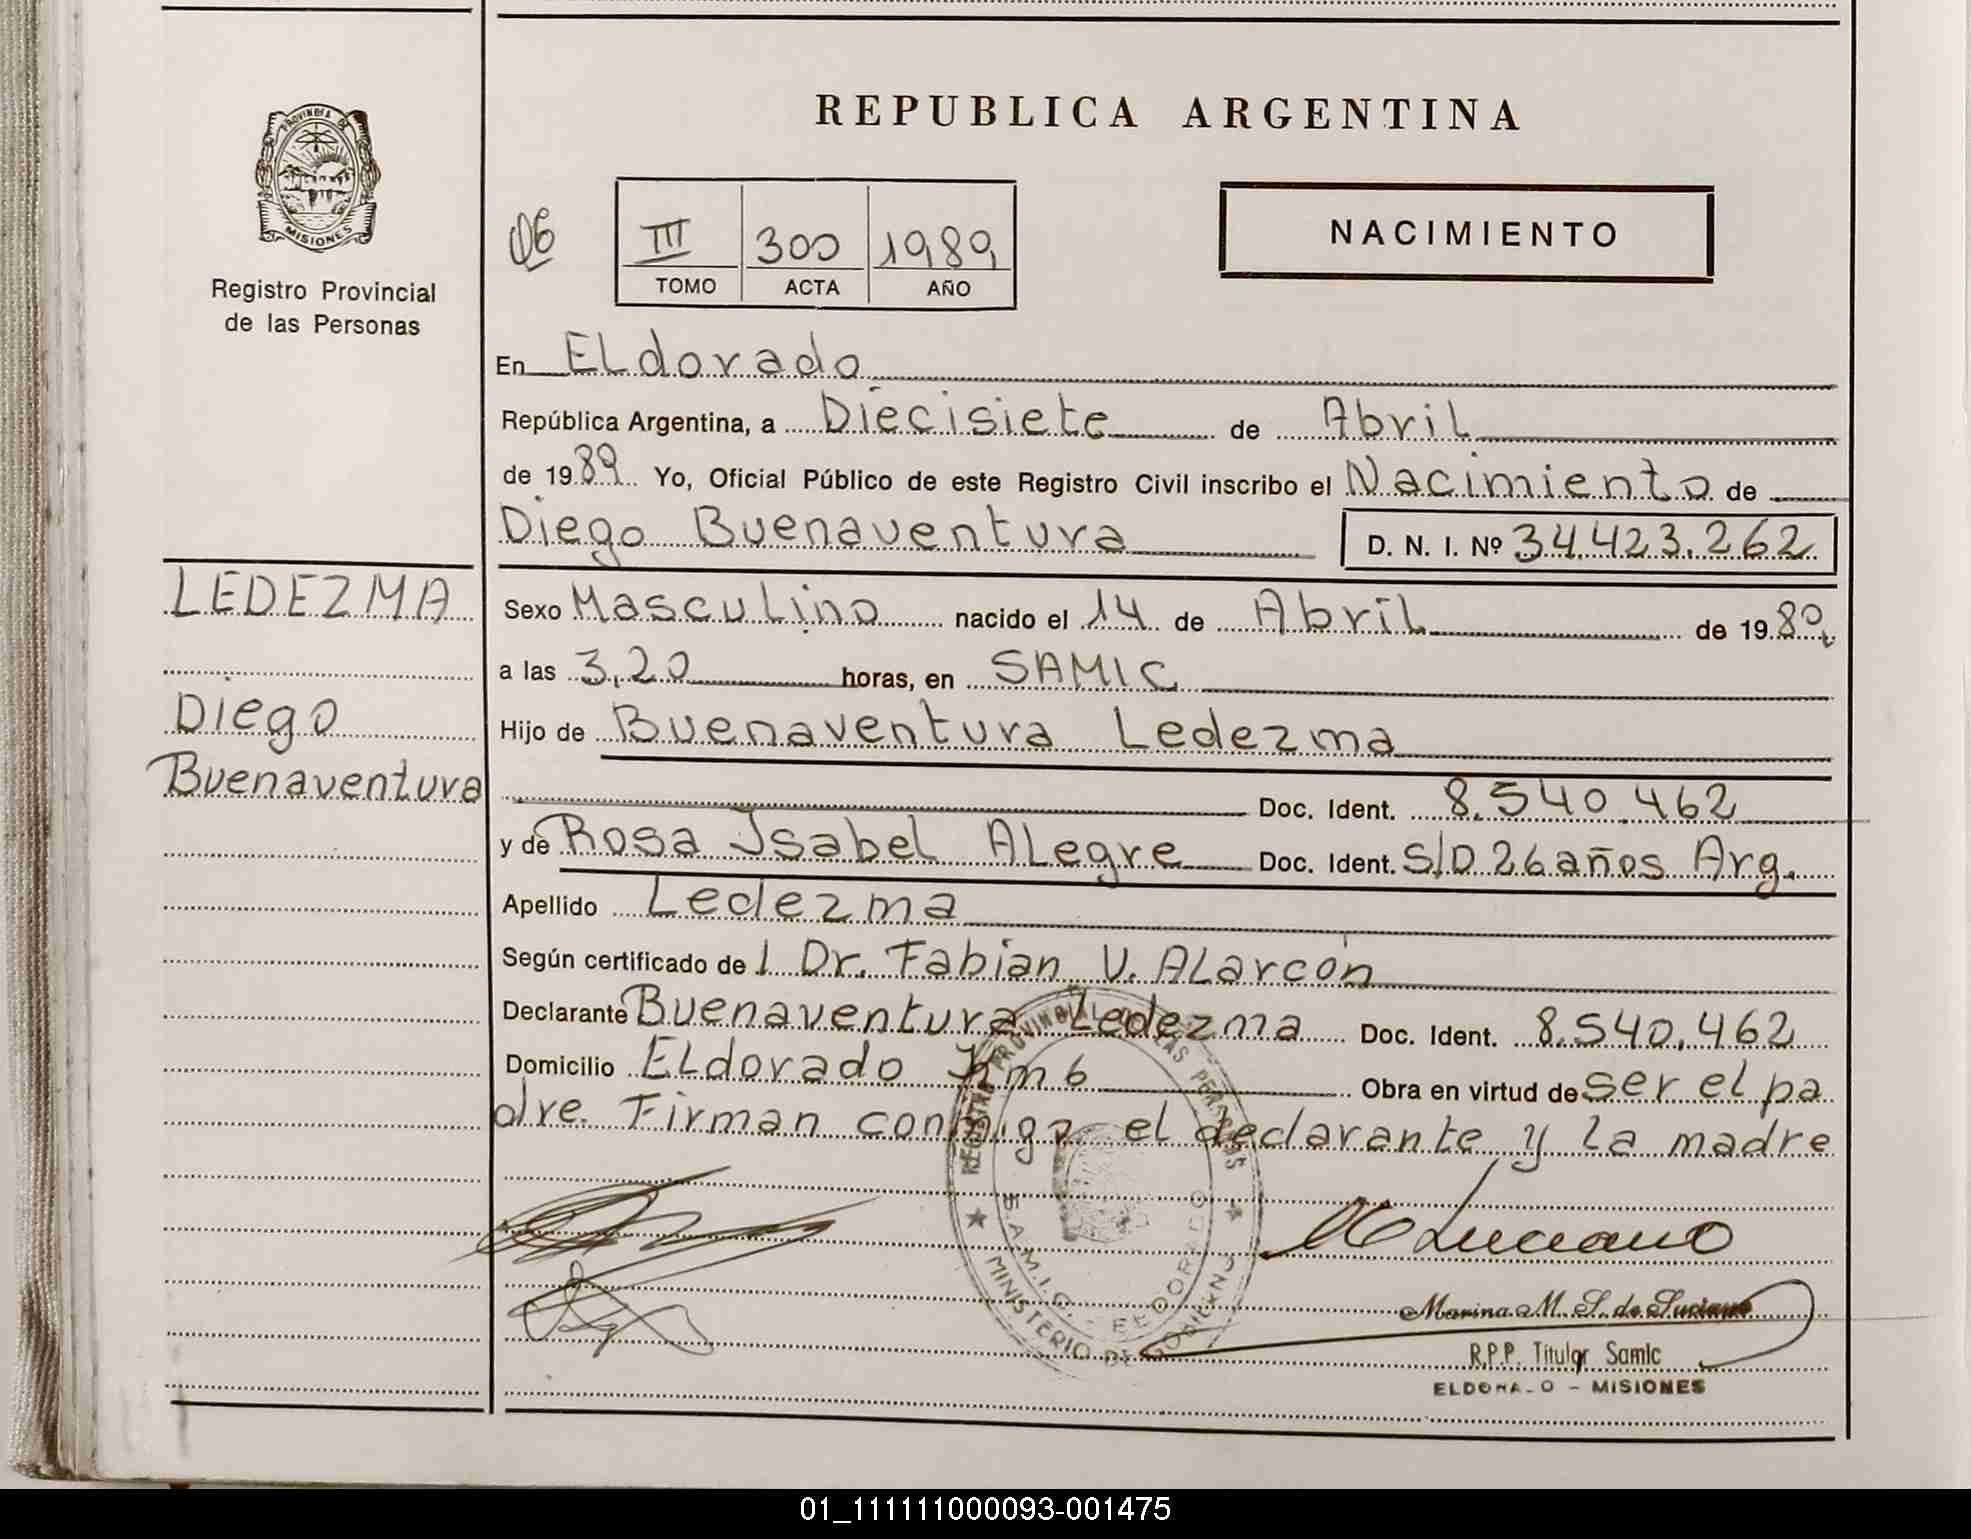 REPUBLICA ARGENTINA
PROVINCIA DE
MISIONES
Registro Provincial
de las Personas
06
III 300 1989
TOMO ACTA AÑO
NACIMIENTO
En ELdorado
República Argentina, a Diecisiete de Abril
de 1989 Yo, Oficial Público de este Registro Civil inscribo el Nacimiento de
Diego Buenaventura D. N. I. Nº 34.423.262
LEDEZMA
Diego
Buenaventura
Sexo Masculino nacido el 14 de Abril de 19
a las 3,20 horas, en SAMIC
Hijo de Buenaventura Ledezma
Doc. Ident. 8.540.462
y de Rosa Isabel ALegre Doc. Ident. S/D 26 años Arg.
Apellido Ledezma
Según certificado de l Dr. Fabian V. ALarcón
Declarante Buenaventura Ledezma Doc. Ident. 8.540.462
Domicilio ELdorado Km 6 Obra en virtud de ser el pa
dre. Firman conmigo el declarante y la madre
REGISTRO PROVINCIAL DE LAS PERSONAS
S.A.M.I.C. - ELDORADO
MINISTERIO DE GOBIERNO
M Luciano
Marina M. S. de Luciano
R.P.P. Titular Samic
ELDORADO - MISIONES
01_111111000093-001475